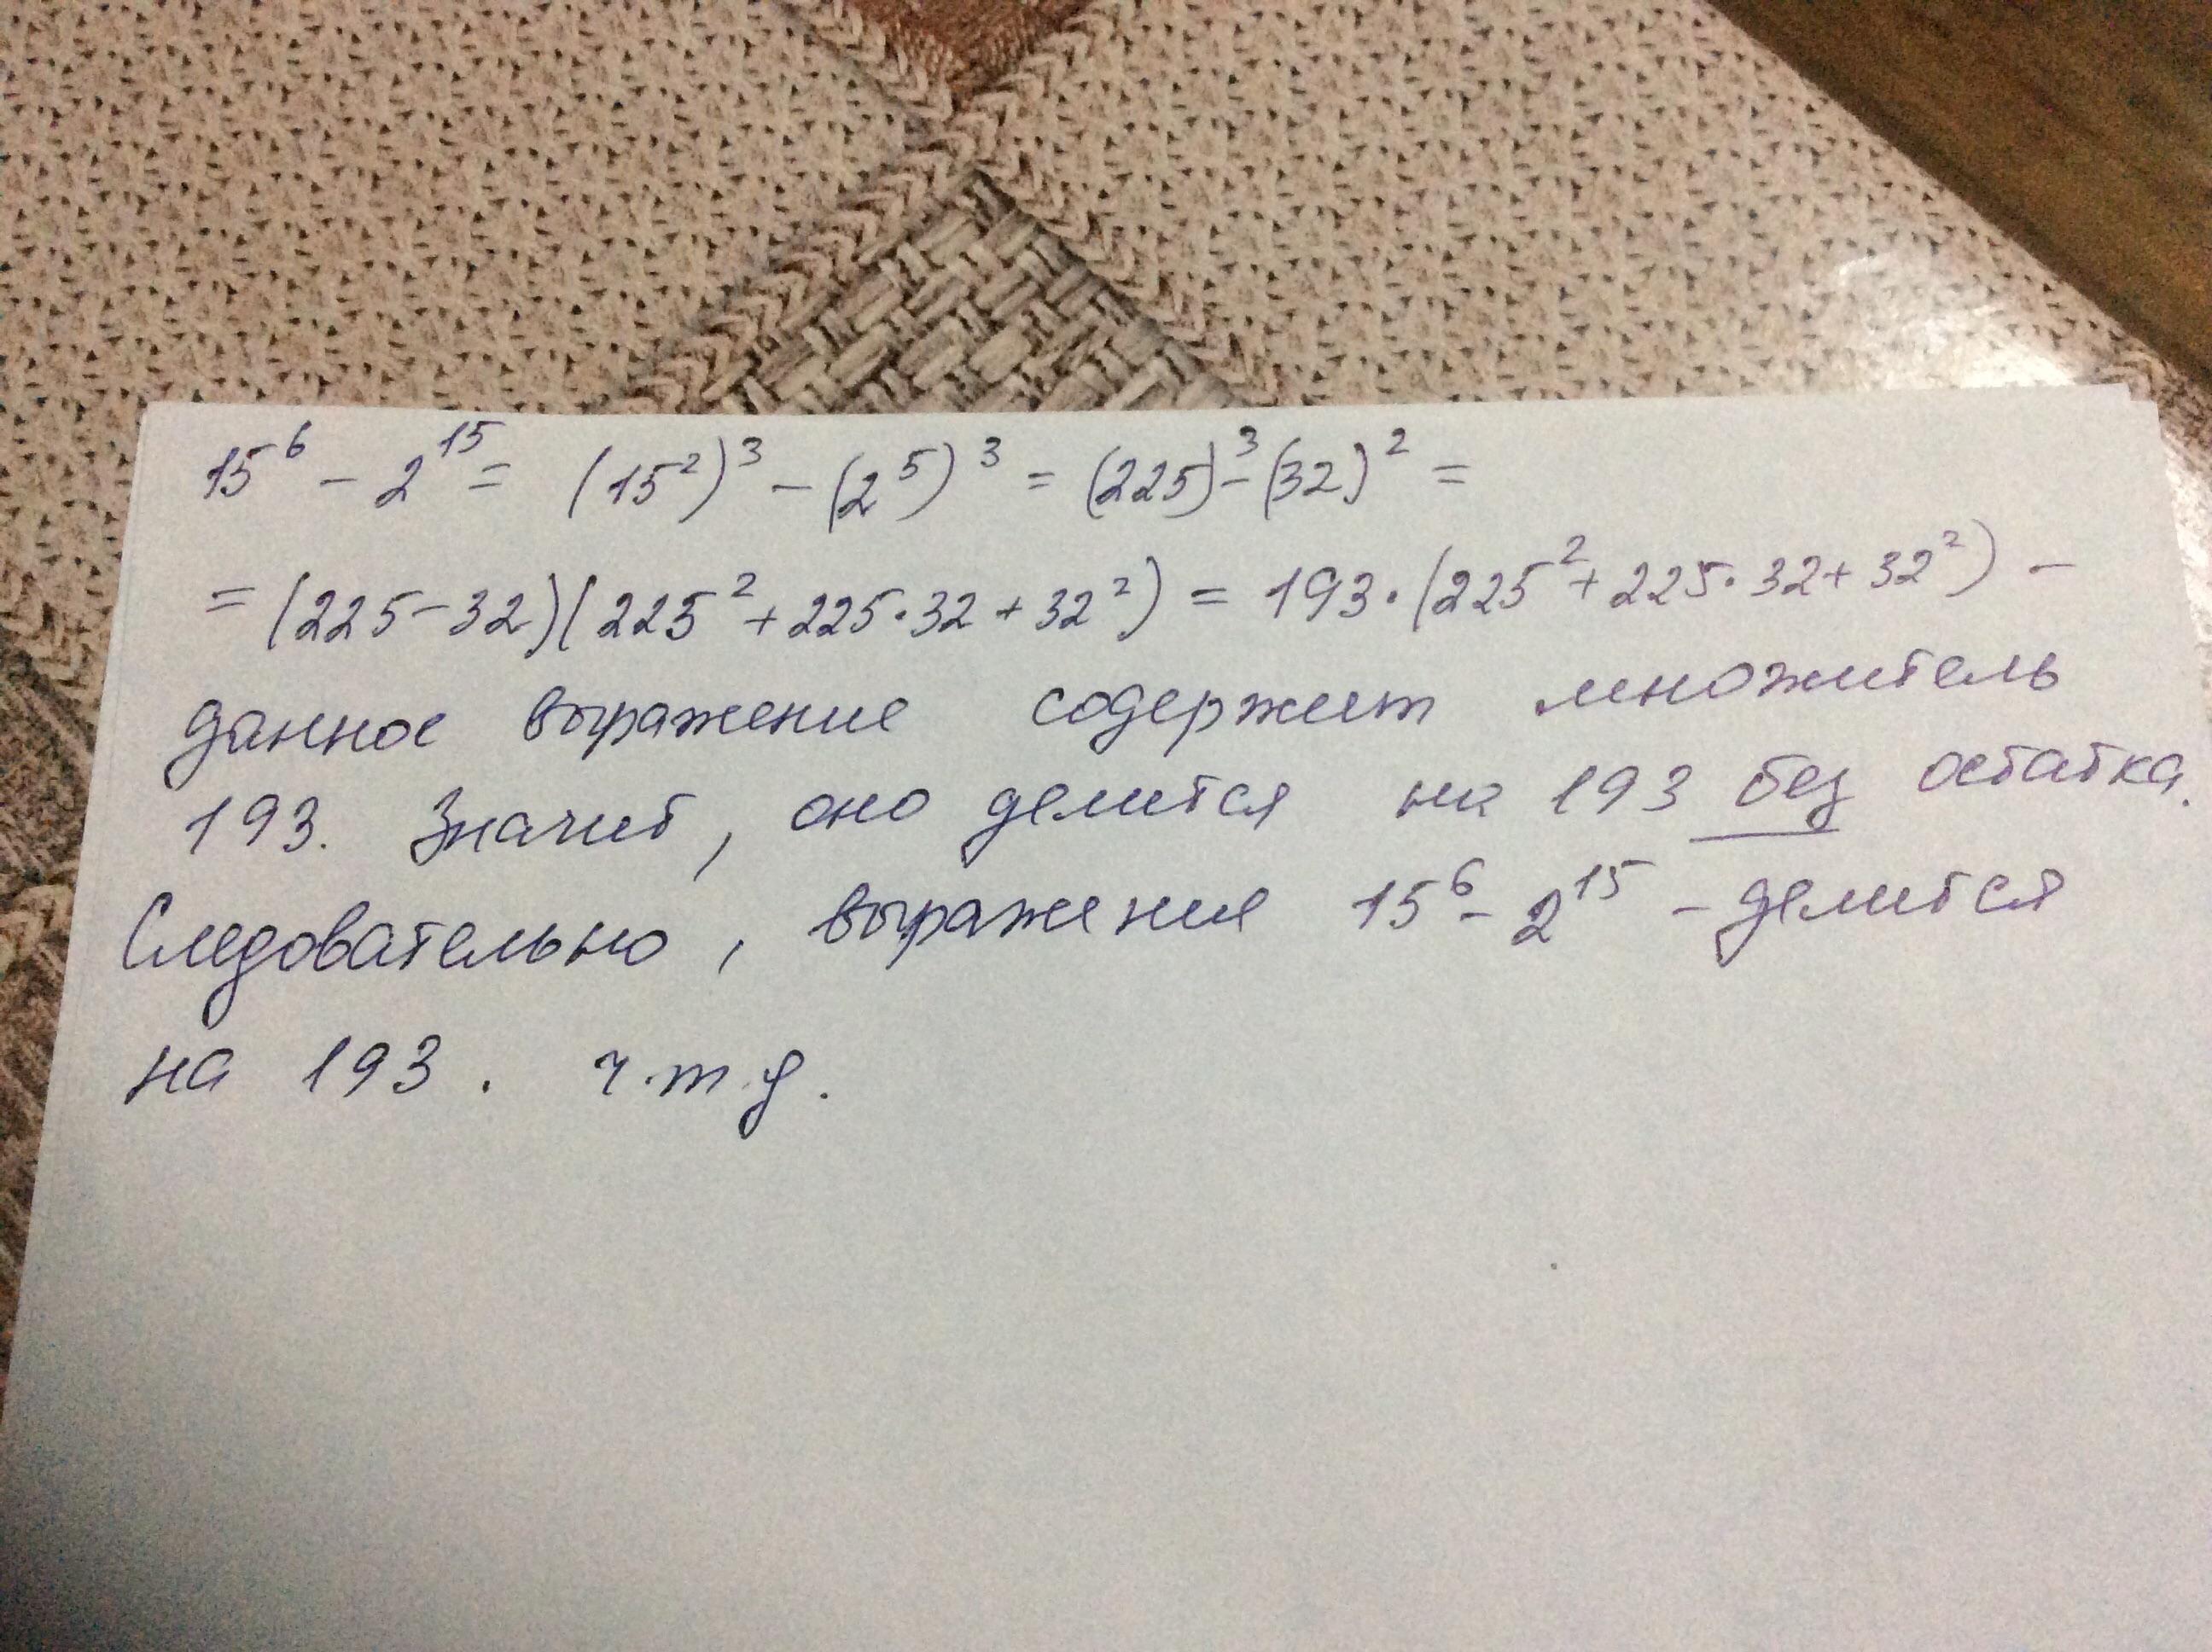 15⁶ - 2¹⁵ = (15²)³ - (2⁵)³ = (225)³ - (32)² =
= (225 - 32)(225² + 225·32 + 32²) = 193·(225² + 225·32 + 32²) -
данное выражение содержит множитель
193. Значит, оно делится на 193 без остатка.
Следовательно, выражение 15⁶ - 2¹⁵ - делится
на 193. ч.т.д.